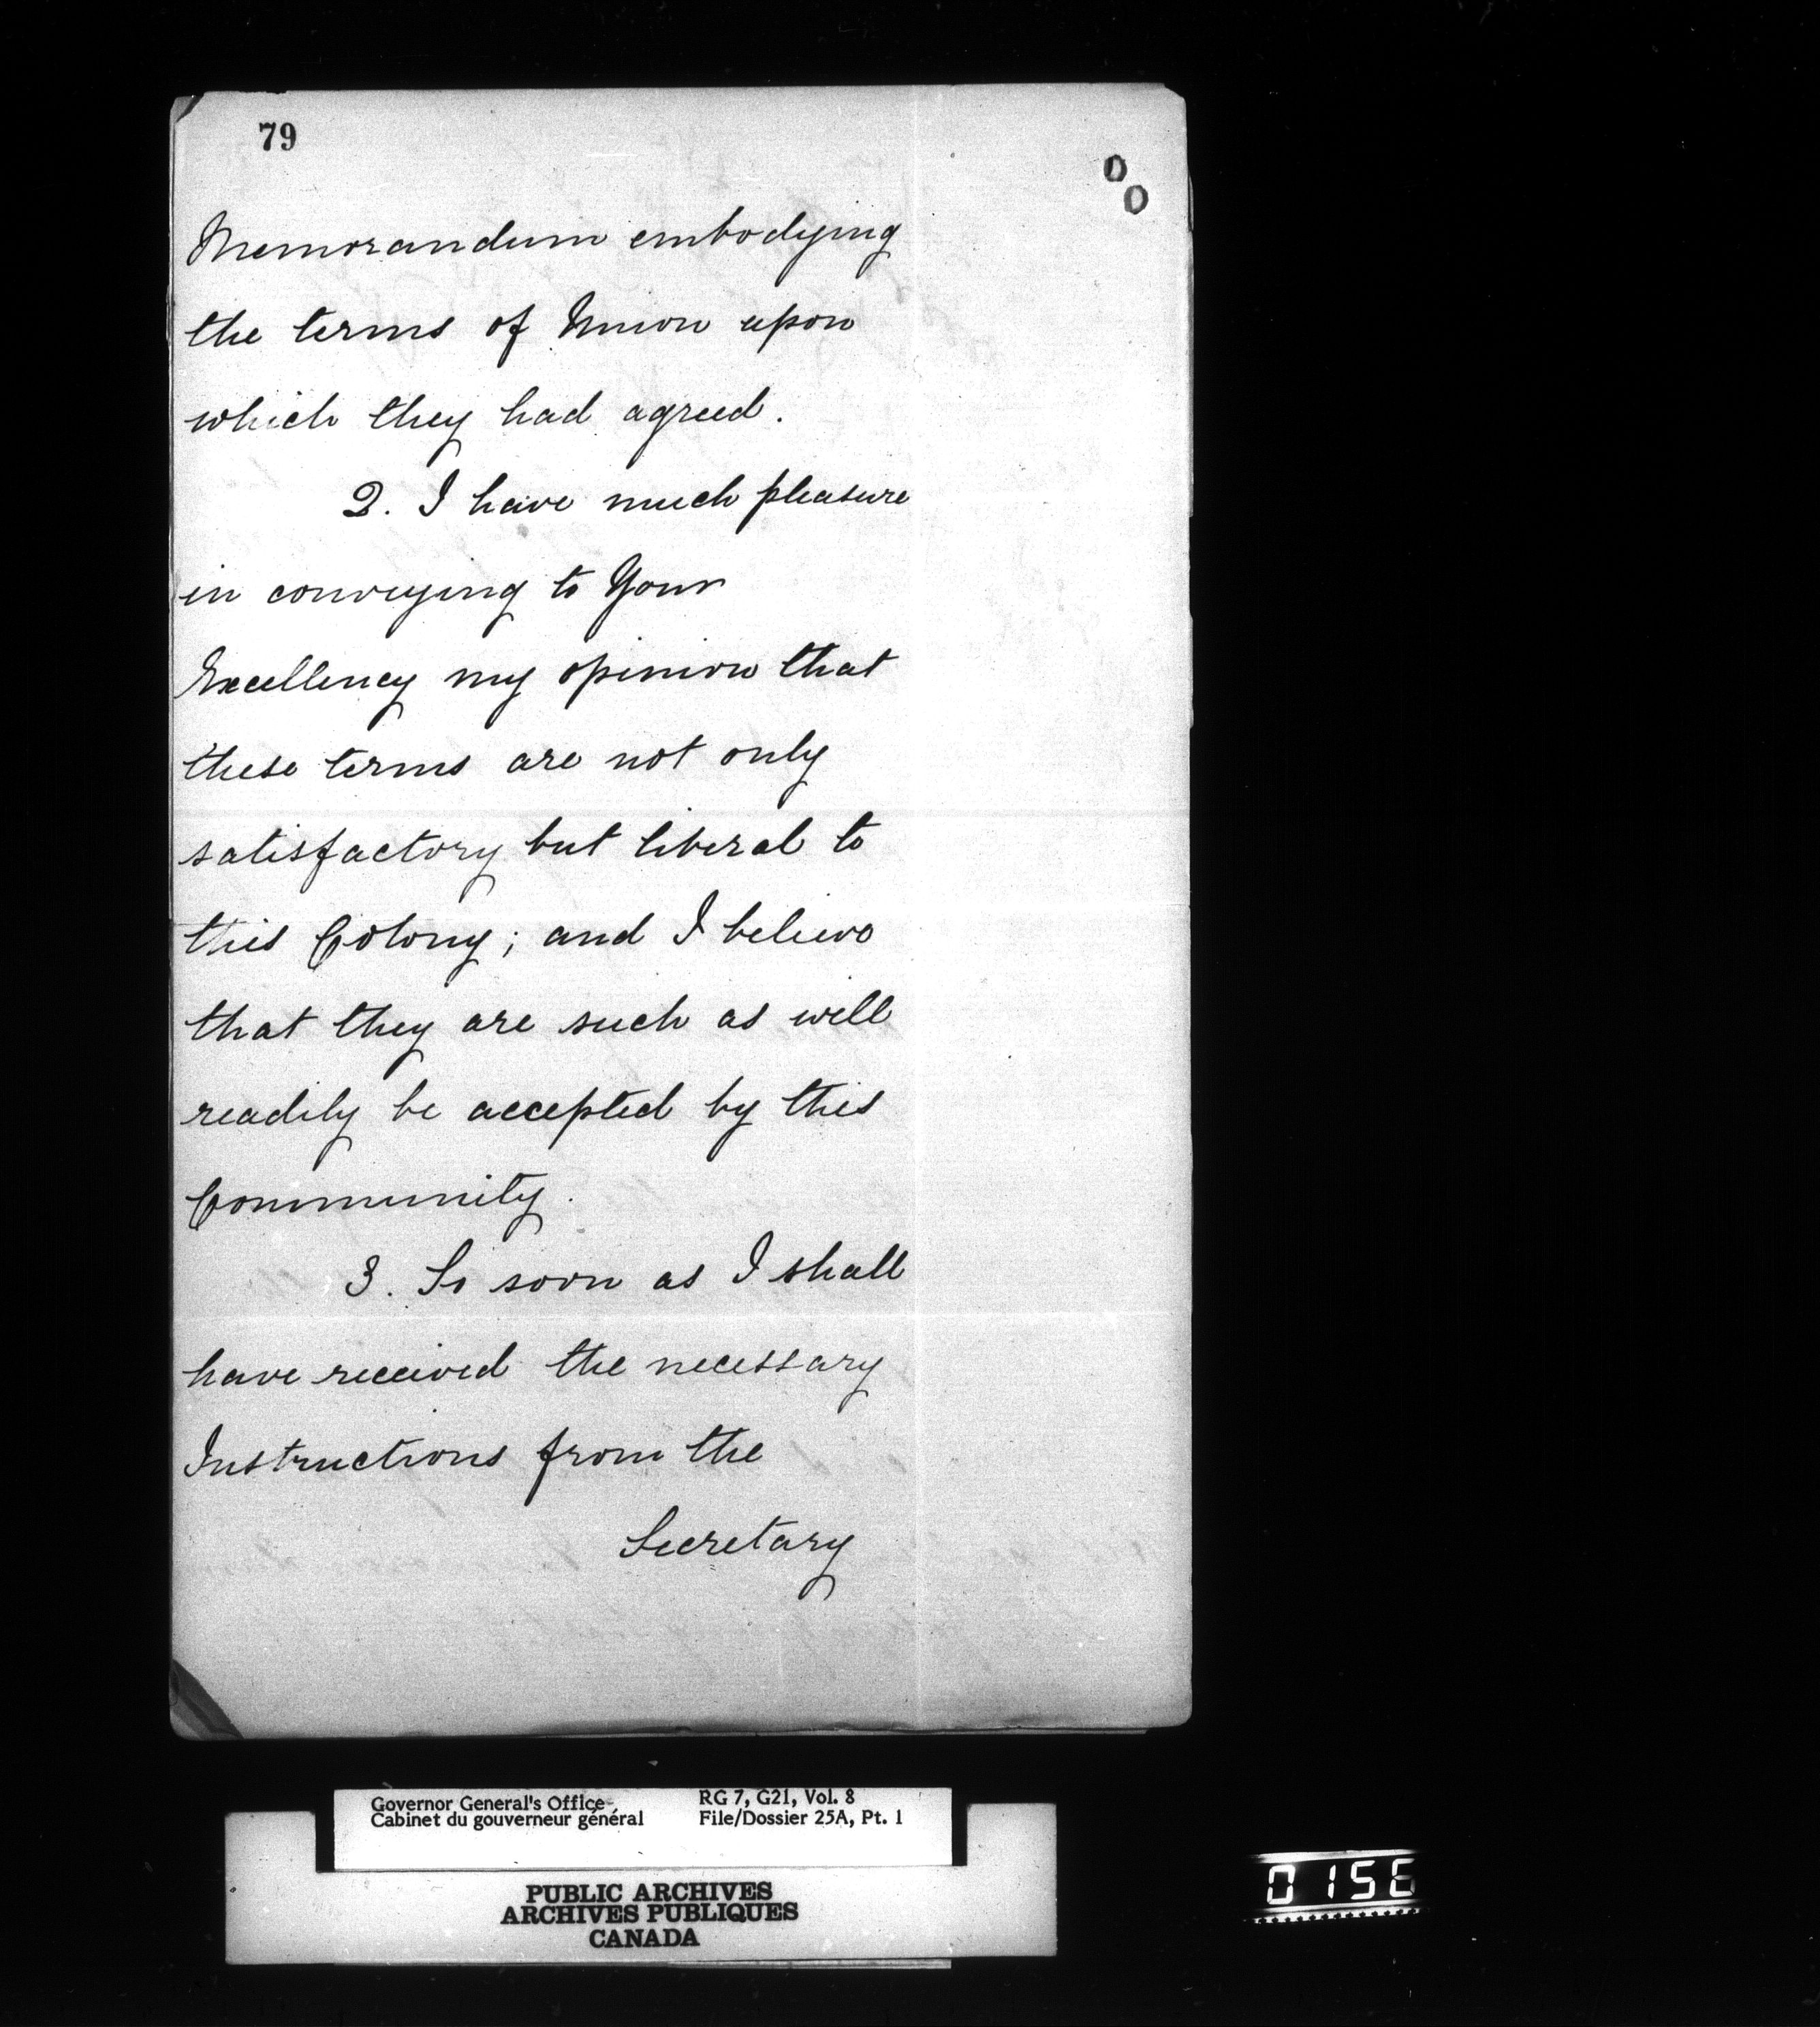 79
Memorandum embodying
the terms of Union upon
which they had agreed.
2. I have much pleasure
in conveying to Your
Excellency my opinion that
these terms are not only
satisfactory but liberal to
this Colony; and I believe
that they are such as will
readily be accepted by this
Community.
3. So soon as I shall
have received the necessary
Instructions from the
Secretary
Governor General's Office RG 7, G21, Vol. 8
Cabinet du gouverneur général File/Dossier 25A, Pt. 1
PUBLIC ARCHIVES
ARCHIVES PUBLIQUES
CANADA